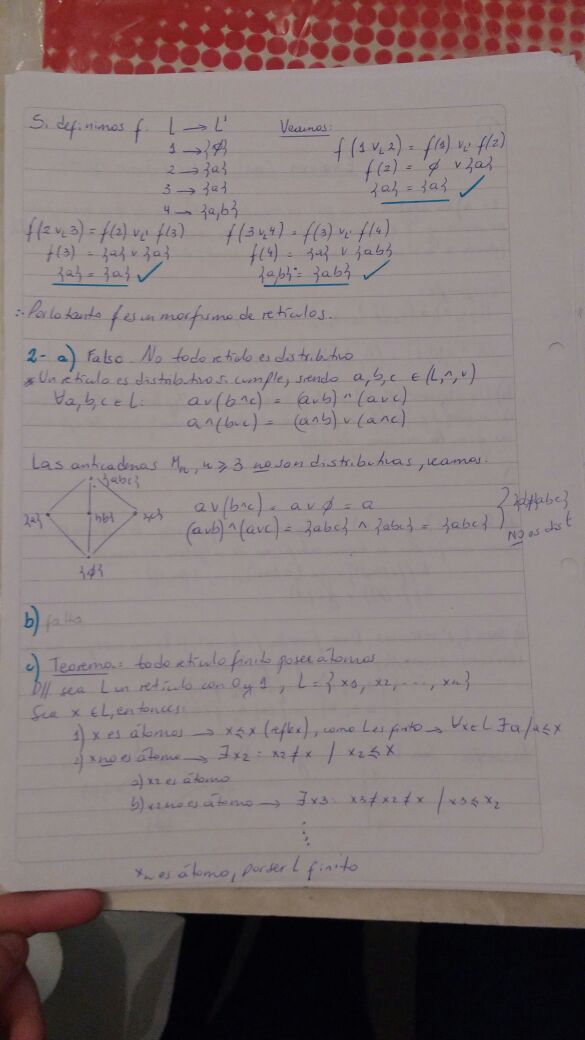 Si definimos f: L → L'
1 → {∅}
2 → {a}
3 → {a}
4 → {a,b}
Veamos:
f(1 ∨L 2) = f(1) ∨L' f(2)
f(2) = ∅ ∨ {a}
{a} = {a} ✓
f(2 ∨L 3) = f(2) ∨L' f(3)
f(3) = {a} ∨ {a}
{a} = {a} ✓
f(3 ∨L 4) = f(3) ∨L' f(4)
f(4) = {a} ∨ {ab}
{a,b} = {ab} ✓
∴ Por lo tanto f es un morfismo de retículos.
2- a) Falso. No todo retículo es distributivo
* Un retículo es distributivo si cumple, siendo a,b,c ∈ (L,∧,∨)
∀a,b,c ∈ L: a∨(b∧c) = (a∨b)∧(a∨c)
a∧(b∨c) = (a∧b)∨(a∧c)
Las anticadenas Mn, n ≥ 3 no son distributivas, veamos.
{abc}
{a} {b} {c}
{∅}
a∨(b∧c) = a∨∅ = a
(a∨b)∧(a∨c) = {abc} ∧ {abc} = {abc}
{a}≠{abc}
NO es dist
b) falta
c) Teorema: todo retículo finito posee átomos
D// sea L un retículo con 0 y 1, L = {x1, x2, ..., xn}
Sea x ∈ L, entonces:
1) x es átomos → x ≤ x (reflex), como L es finito → ∀x∈L ∃a / a ≤ x
2) x no es átomo → ∃x2: x2 ≠ x / x2 ≤ x
a) x2 es átomo
b) x2 no es átomo → ∃x3: x3 ≠ x2 ≠ x / x3 ≤ x2
⋮
xn es átomo, por ser L finito